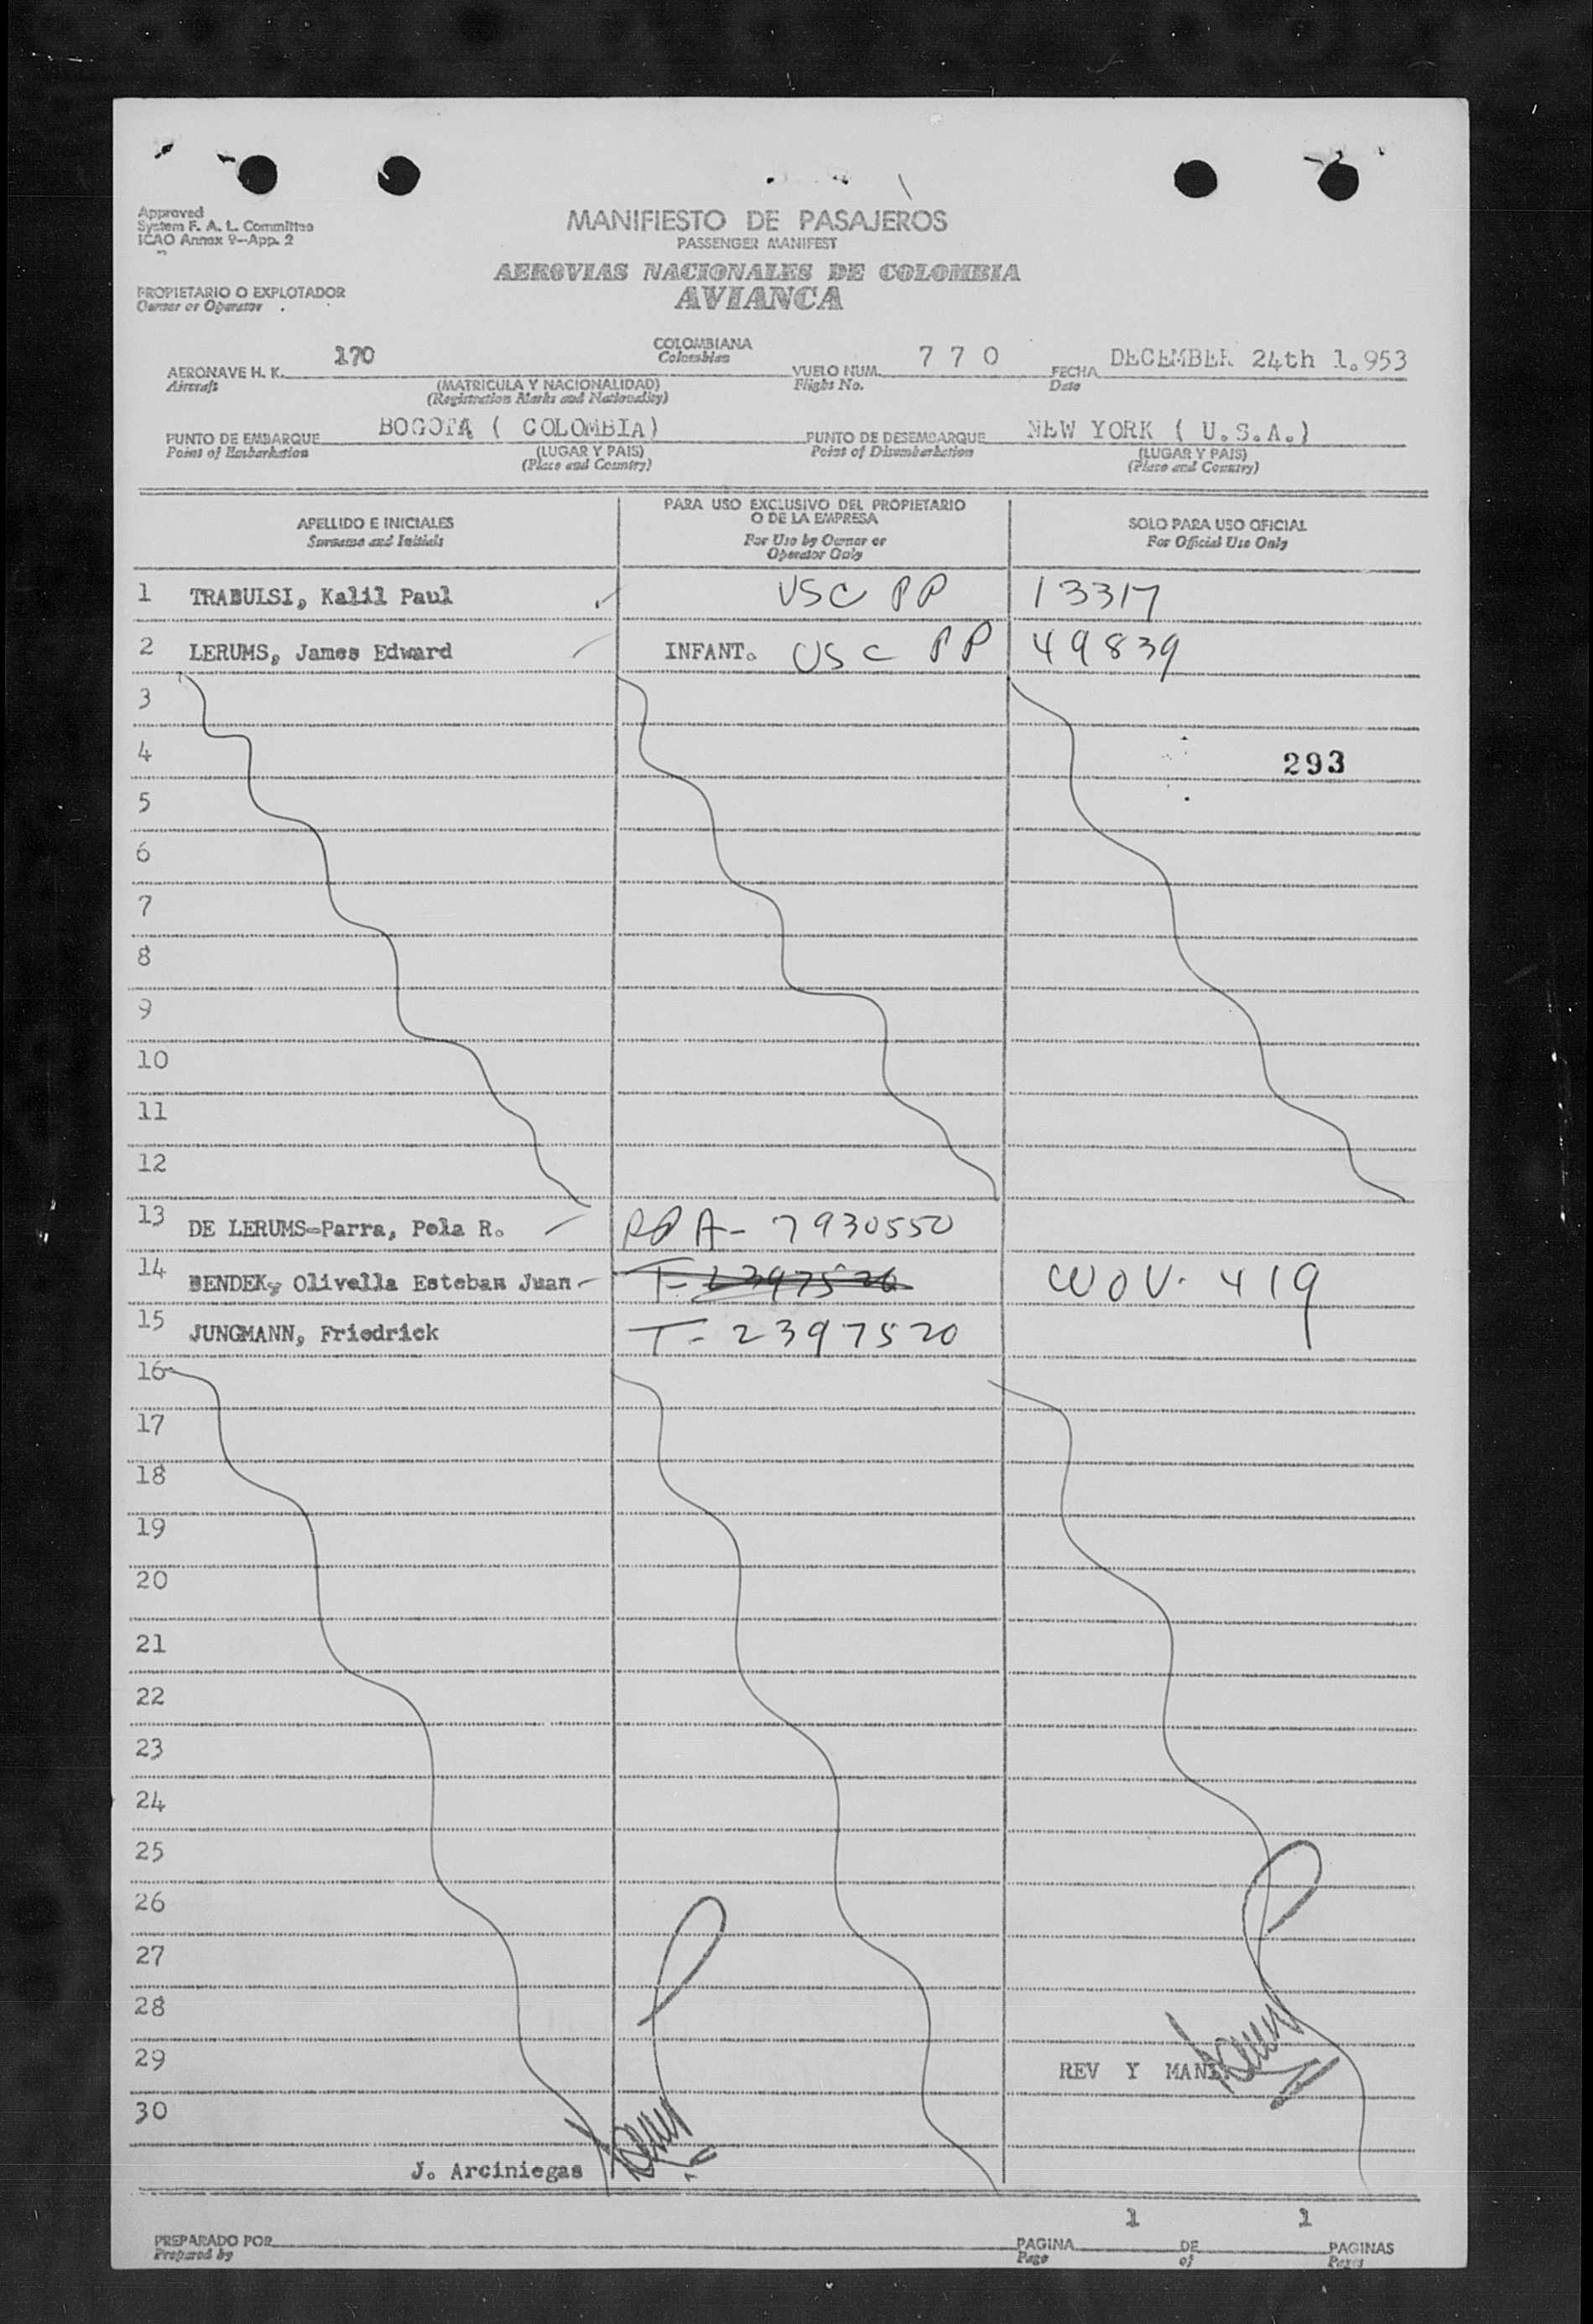 Approved
System F. A. L. Committee
ICAO Annex 9-App. 2
MANIFIESTO DE PASAJEROS
PASSENGER MANIFEST
AEROVIAS NACIONALES DE COLOMBIA
AVIANCA
PROPIETARIO O EXPLOTADOR
Owner or Operator
AERONAVE H. K. 170 COLOMBIANA VUELO NUM. 7 7 0 FECHA DECEMBER 24th 1.953
Aircraft Colombian Flight No. Date
(MATRICULA Y NACIONALIDAD)
(Registration Marks and Nationality)
PUNTO DE EMBARQUE BOGOTA ( COLOMBIA) PUNTO DE DESEMBARQUE NEW YORK ( U.S.A.)
Point of Embarkation (LUGAR Y PAIS) Point of Disembarkation (LUGAR Y PAIS)
(Place and Country) (Place and Country)
APELLIDO E INICIALES
Surname and Initials
PARA USO EXCLUSIVO DEL PROPIETARIO
O DE LA EMPRESA
For Use by Owner or
Operator Only
SOLO PARA USO OFICIAL
For Official Use Only
1 TRABULSI, Kalil Paul USC PP 13317
2 LERUMS, James Edward INFANT. USC PP 49839
3
4 293
5
6
7
8
9
10
11
12
13 DE LERUMS-Parra, Pola R. PP A- 7930550
14 BENDEK, Olivella Esteban Juan - T- 2397520 WOV. 419
15 JUNGMANN, Friedrick T- 2397520
16
17
18
19
20
21
22
23
24
25
26
27
28
29 REV Y MAN
30
J. Arciniegas
PREPARADO POR PAGINA 1 DE 1 PAGINAS
Prepared by Page of Pages